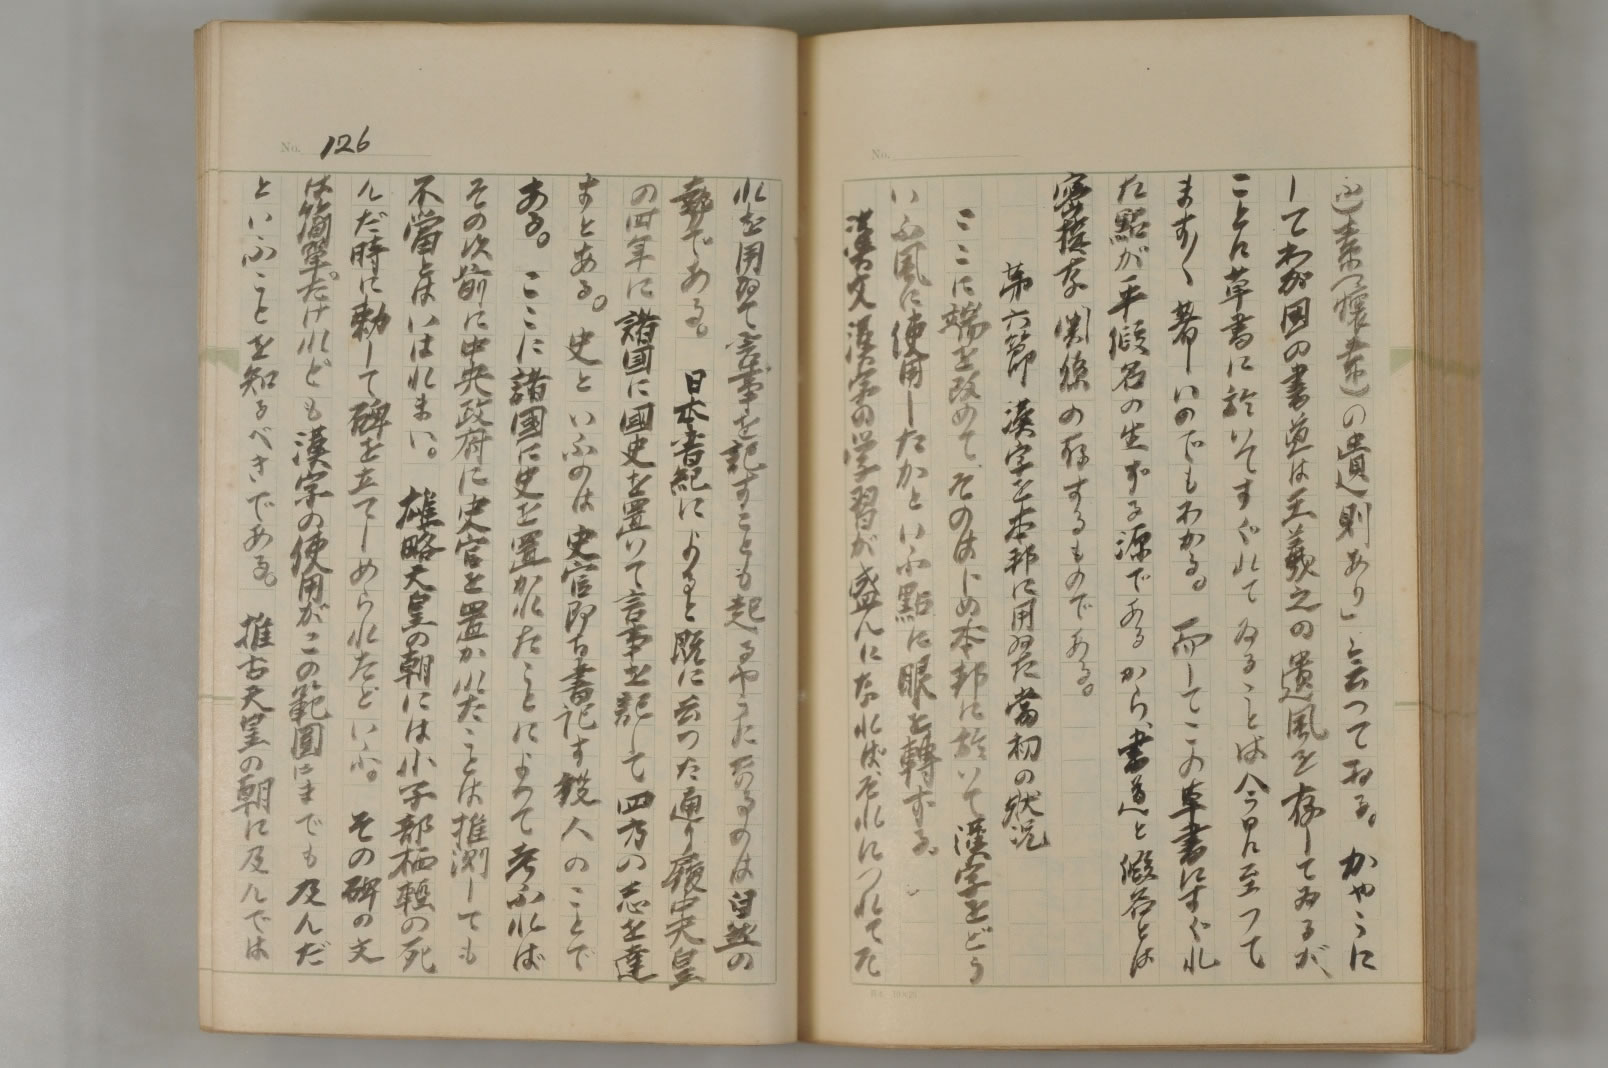 (張素・懐素)の遺則あり」と云つてゐる。かやうに
してわが國の書道は王羲之の遺風を存してゐるが、
ことに草書に於いてすぐれてゐることは今日に至つて
ます〱著しいのでもわかる。而してこの草書にすぐれ
た點が平假名の生ずる源であるから、書道と假名とは
密接な関係の存するものである。
第六節 漢字を本邦に用ゐた當初の狀況
ここに端を改めて、そのはじめ本邦に於いて漢字をどう
いふ風に使用したかといふ點に眼を轉ずる。
漢文漢字の学習が盛んになればそれにつれてた
No. 126
れを用ゐて言事を記すことも起るやうになるのは自然の
勢である。日本書紀によると既に云つた通り履中天皇
の四年に諸國に國史を置いて言事を記して四方の志を達
すとある。史といふのは史官即ち書記す役人のことで
ある。ここに諸國に史を置かれたことによつて考ふれば
その次前に中央政府に史官を置かれたことは推測しても
不當とはいはれまい。雄略天皇の朝には小子部栖軽の死
んだ時に勅して碑を立てしめられたといふ。その碑の文
は簡單だけれども漢字の使用がこの範囲にまでも及んだ
といふことを知るべきである。推古天皇の朝に及んでは
No.